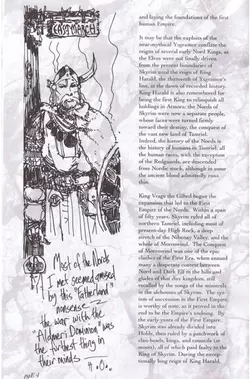 EASTMARCH
and laying the foundations of the first
human Empire.
It may be that the exploits of the
near-mythical Ysgramor conflate the
reigns of several early Nord Kings, as
the Elves were not finally driven
from the present boundaries of
Skyrim until the reign of King
Harald, the thirteenth of Ysgramor's
line, at the dawn of recorded history.
King Harald is also remembered for
being the first King to relinquish all
holdings in Atmora; the Nords of
Skyrim were now a separate people,
whose faces were turned firmly
toward their destiny, the conquest of
the vast new land of Tamriel.
Indeed, the history of the Nords is
the history of humans in Tamriel; all
the human races, with the exception
of the Redguards, are descended
from Nordic stock, although in some
the ancient blood admittedly runs
thin.
King Vrage the Gifted began the
expansion that led to the First
Empire of the Nords. Within a span
of fifty years, Skyrim ruled all of
northern Tamriel, including most of
present-day High Rock, a deep
stretch of the Nibenay Valley, and the
whole of Morrowind. The Conquest
of Morrowind was one of the epic
clashes of the First Era, when
many a desperate contest between
Nord and Dark Elf in the hills and
glades of that dire kingdom, still
recalled by the songs of the minstrels
in the alehouses of Skyrim. The system
of succession in the First Empire
is worthy of note, as it proved in the
end to be the Empire's undoing. By
the early years of the First Empire,
Skyrim was already divided into
Holds, then ruled by a patchwork of
clan-heads, kings, and councils (or
moots), all of which paid fealty to the
King of Skyrim. During the exceptionally
long reign of King Harald,
Most of the Nords
I met seemed amused
by this "fatherland"
nonsense
the war with the
"Aldmeri Dominion" was
the furthest thing in
their minds